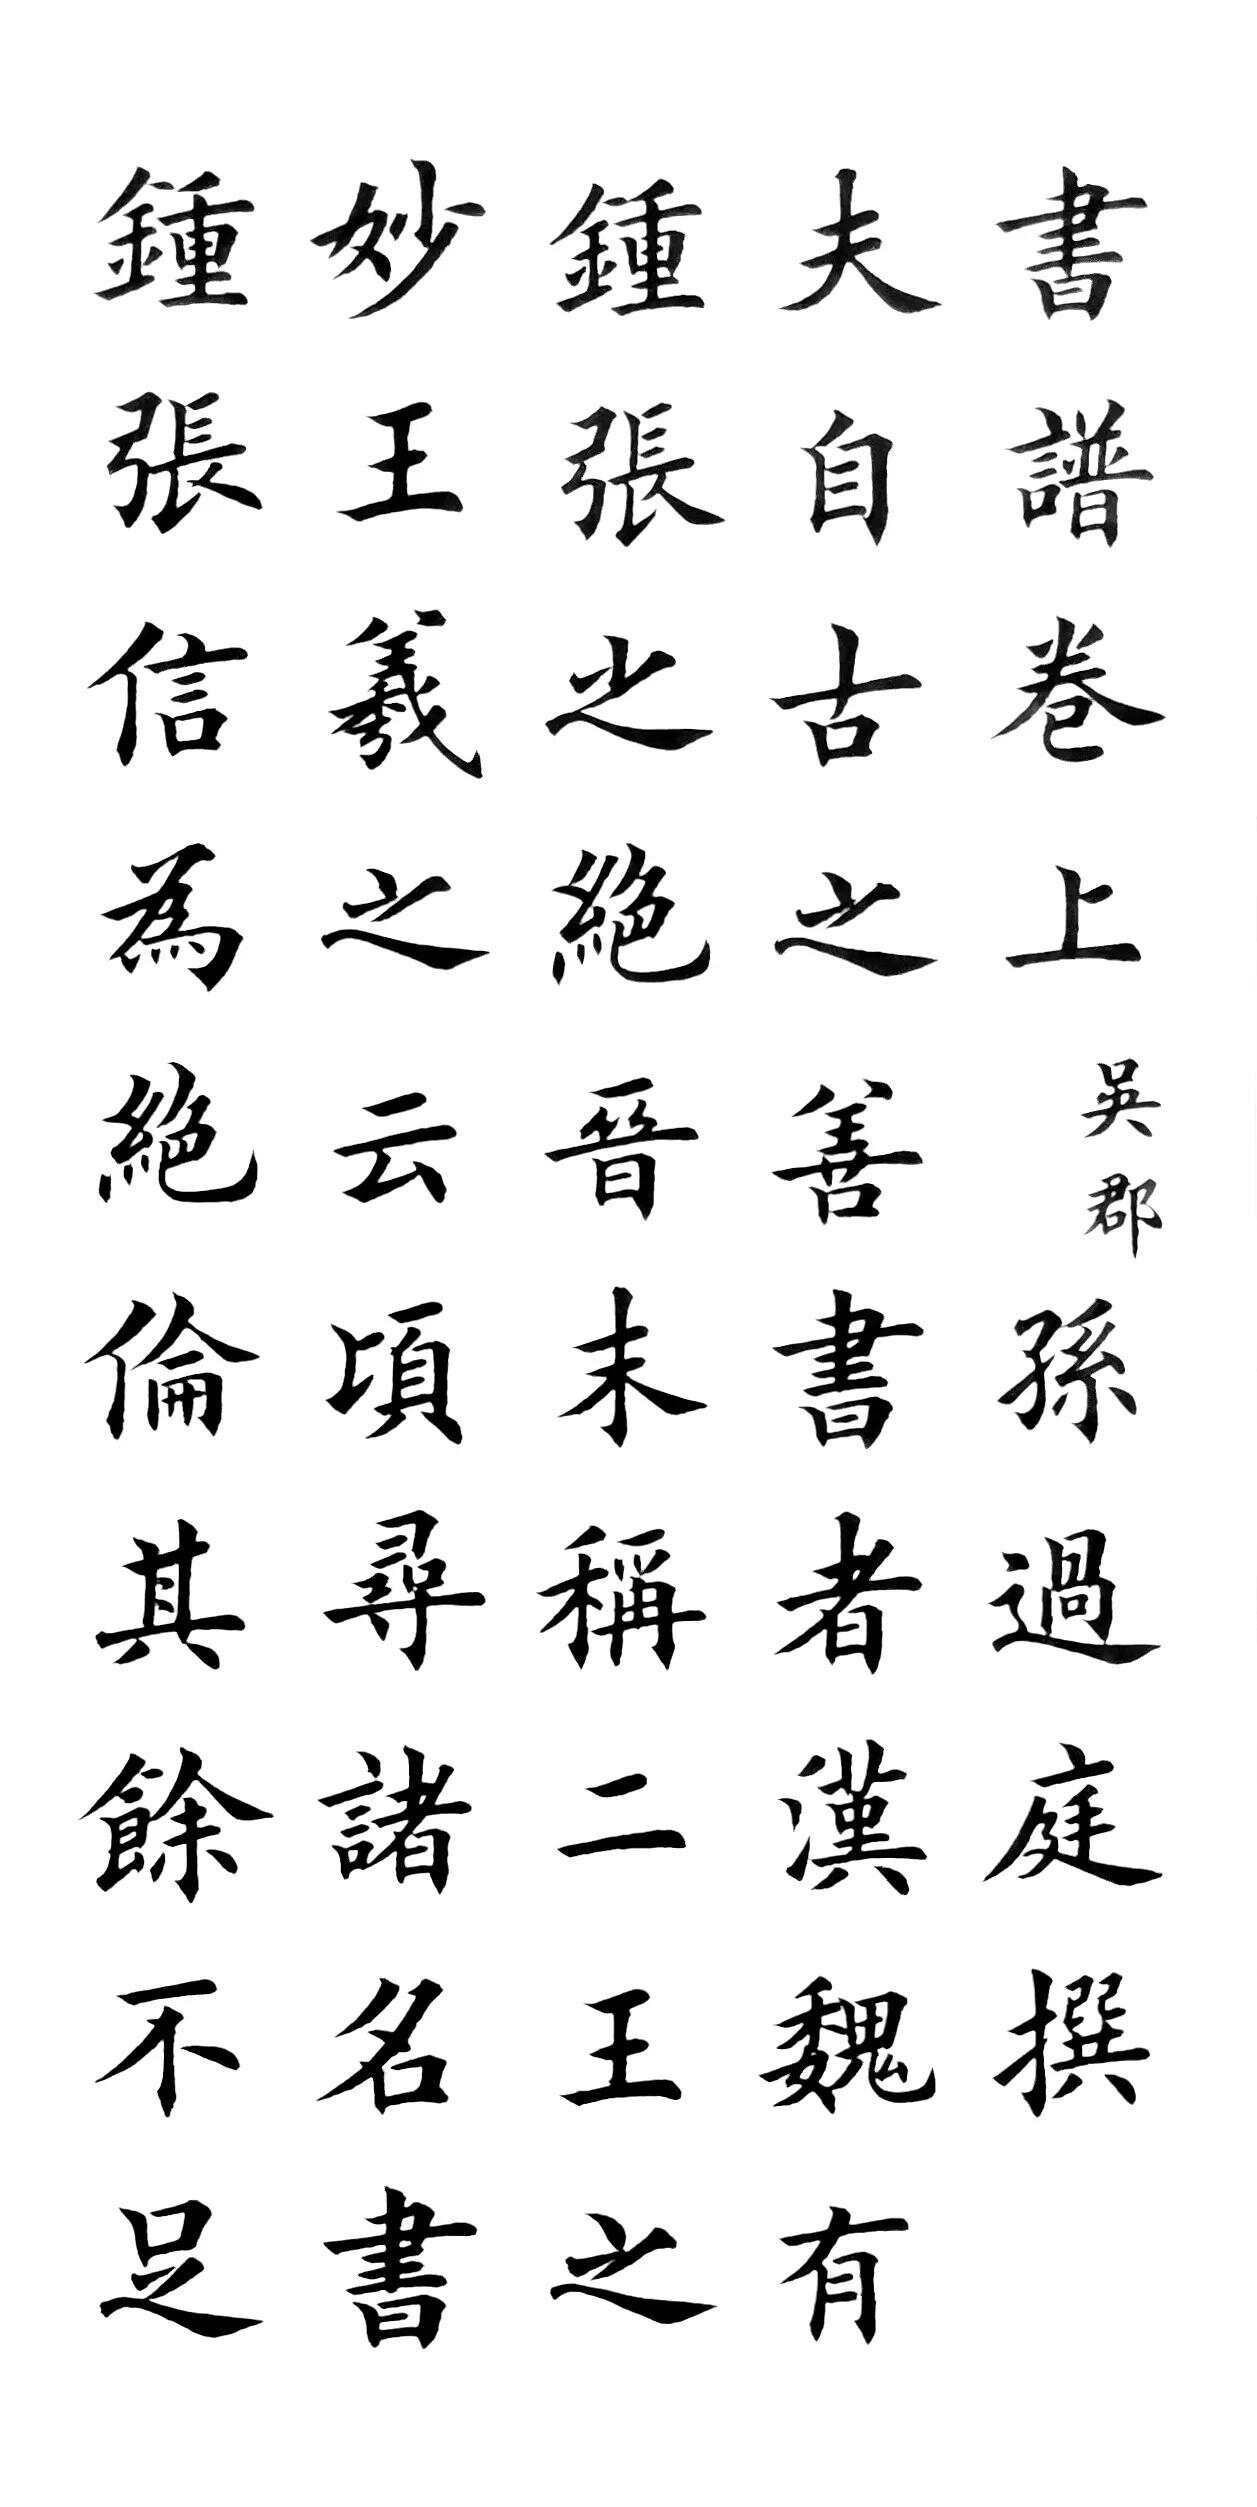 書譜卷上吳郡孫過庭撰
夫自古之善書者漢魏有
鍾張之絶晉末稱二王之
妙王羲之云頃尋諸名書
鍾張信為絶倫其餘不足